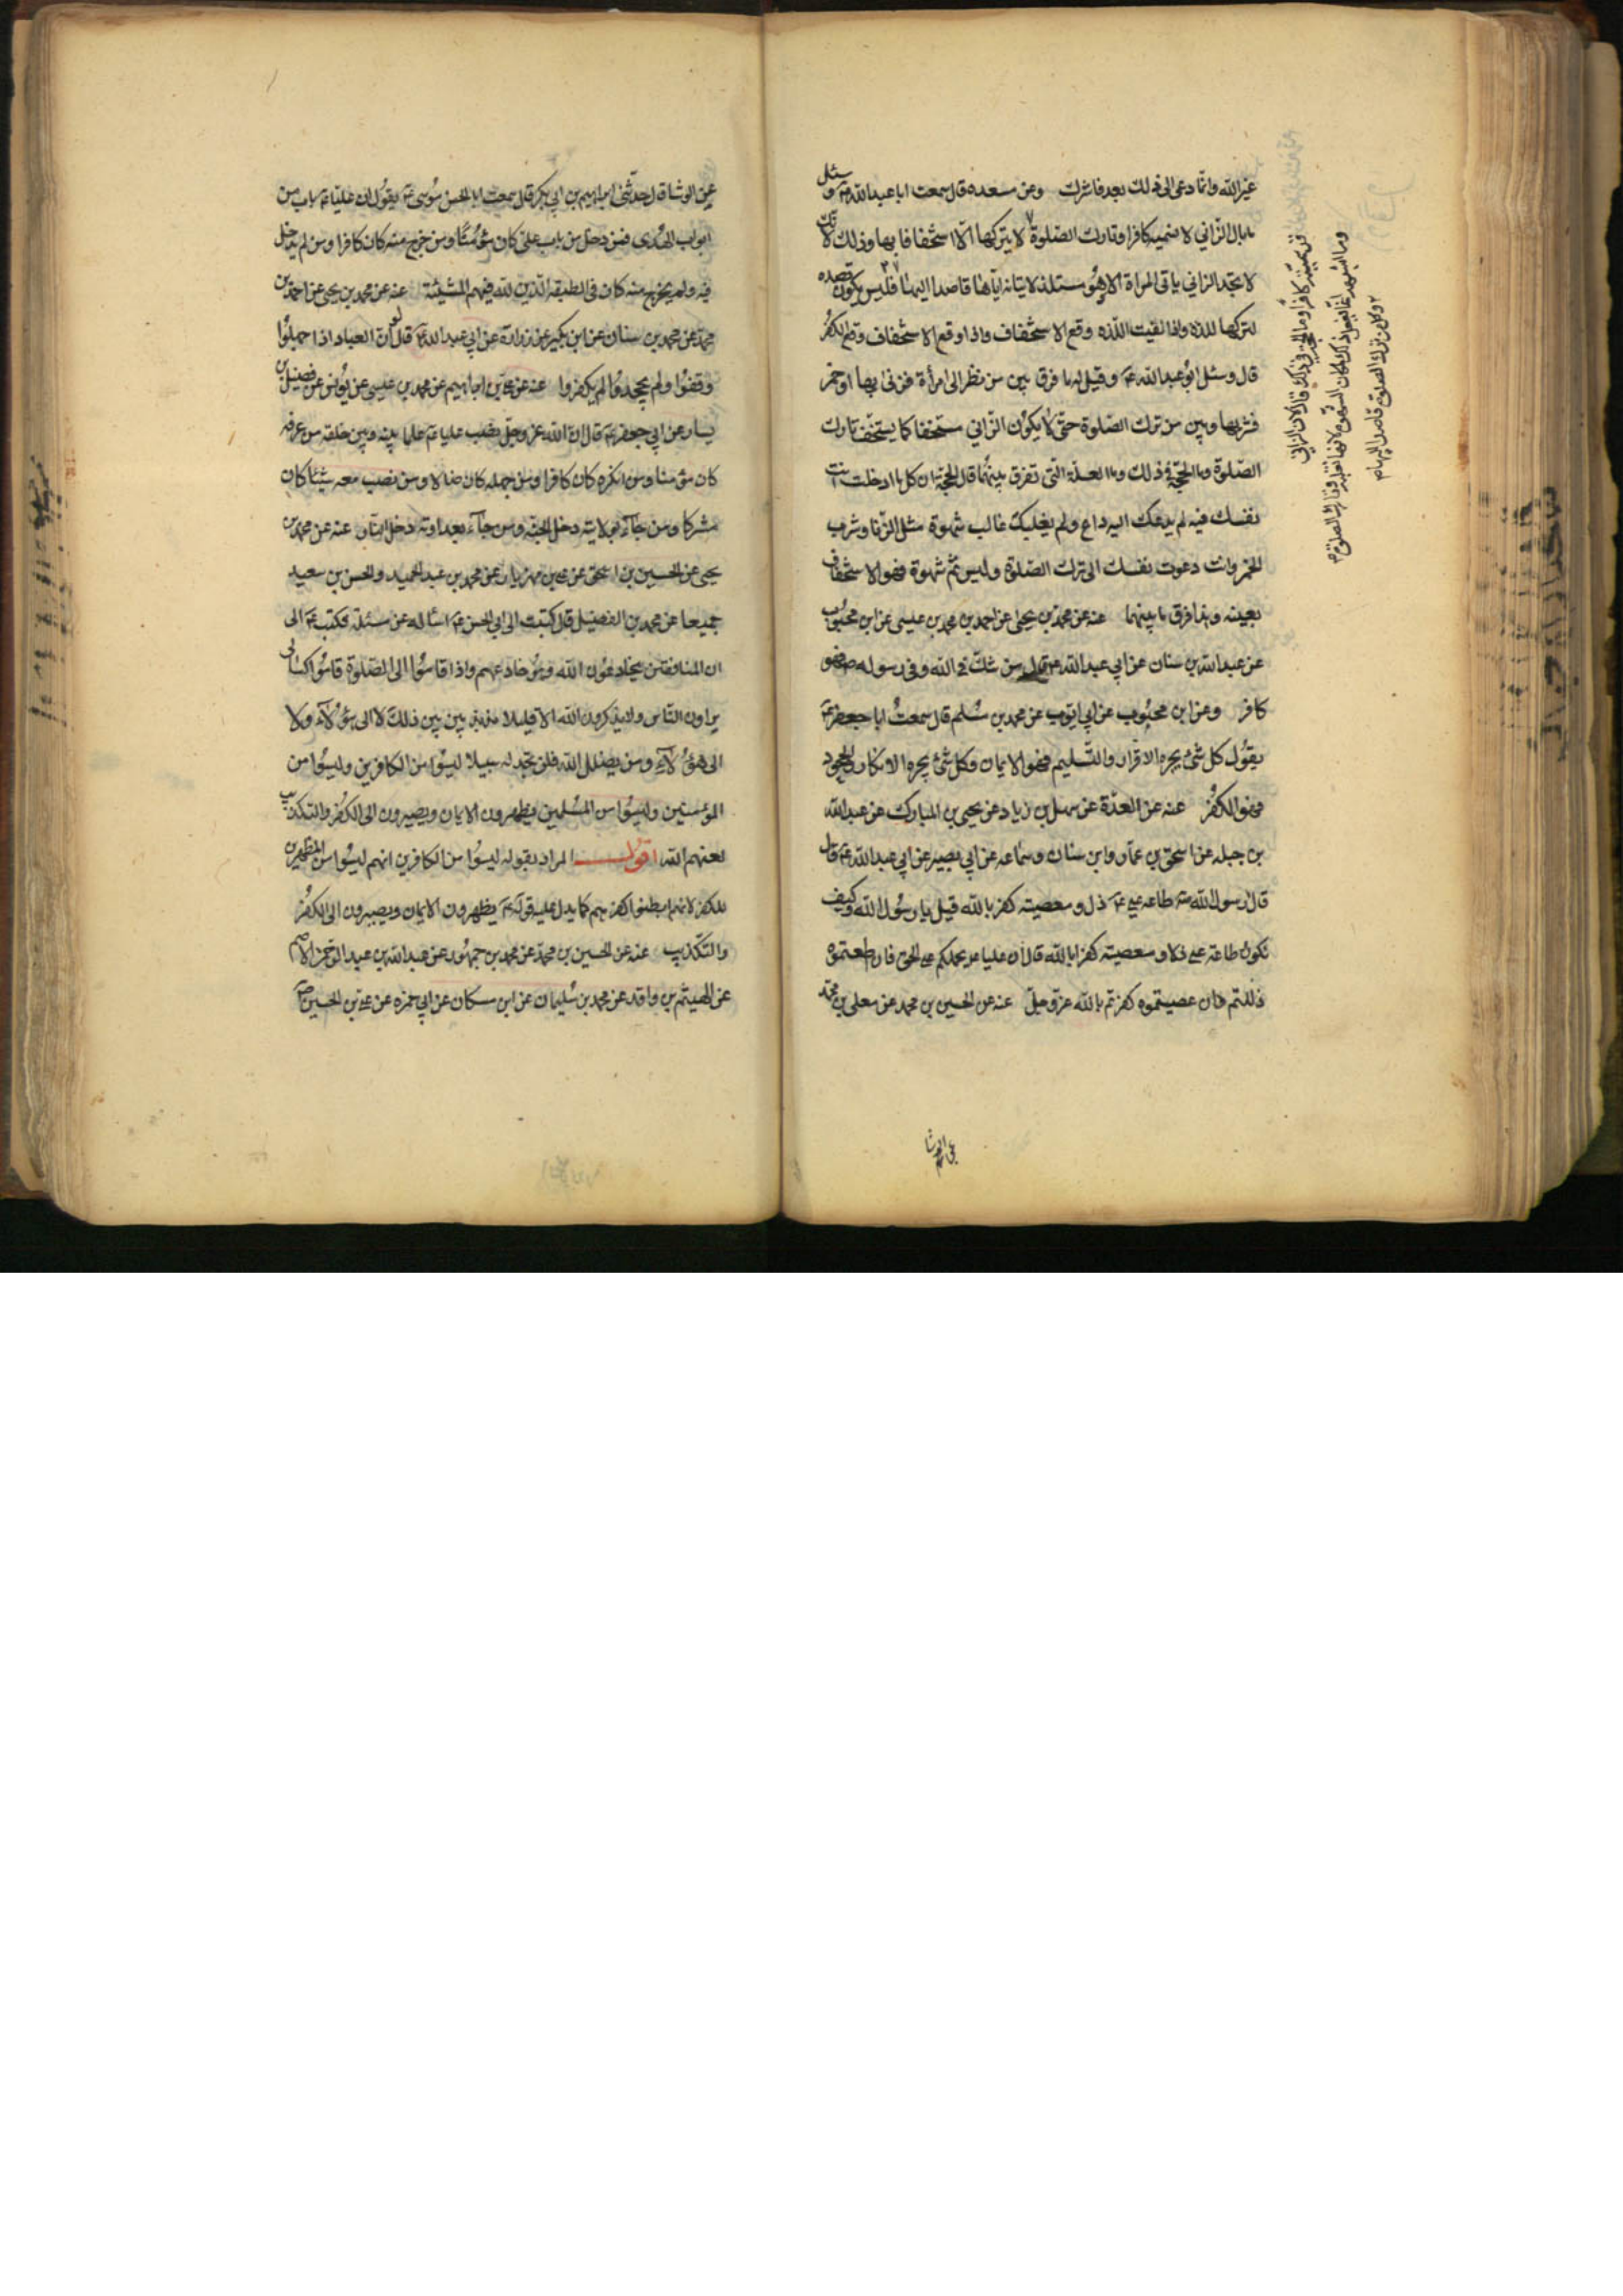 غير الله وانما دعى الى ذلك بعد فاشرك وعن مسعده قال سمعت ابا عبد الله ع‍ وسئل
ما بال الزاني لا نسميه كافرا وتارك الصلوة لا يتركها الا استخفافا بها وذلك لانك
لا تجد الزاني ياتي المراة الا وهو مستلذ لاتيانه اياها قاصدا اليها فليس يكون قصده
لتركها للذه واذا نفيت اللذه وقع الاستخفاف واذا وقع الاستخفاف وقع الكفر
قال وسئل ابو عبد الله ع‍ وقيل له ما فرق بين من نظر الى امرأة فزنى بها او خمر
فشربها وبين من ترك الصلوة حتى لا يكون الزاني مستخفا كما يستخف تارك
الصلوة وما الحجة في ذلك وما العلة التي تفرق بينهما قال الحجة ان كل ما ادخلت انت
نفسك فيه لم يدعك اليه داع ولم يغلبك غالب شهوة مثل الزنا وشرب
الخمر وانت دعوت نفسك الى ترك الصلوة وليس ثم شهوة فهو الاستخفاف
بعينه وهذا فرق ما بينهما عنه عن محمد بن يحيى عن احمد بن محمد بن عيسى عن ابن محبوب
عن عبد الله بن سنان عن ابي عبد الله ع‍ قال من شك في الله وفي رسوله ص فهو
كافر وعن ابن محبوب عن ابي ايوب عن محمد بن مسلم قال سمعت ابا جعفر ع‍
يقول كل شئ يجره الاقرار والتسليم فهو الايمان وكل شئ يجره الانكار والجحود
فهو الكفر عنه عن العدة عن سهل بن زياد عن يحيى بن المبارك عن عبد الله
بن جبله عن اسحق بن عمار وابن سنان وسماعه عن ابي بصير عن ابي عبد الله ع‍ قال
قال رسول الله ص طاعه علي ع‍ ذل ومعصيته كفر بالله قيل يا رسول الله وكيف
تكون طاعة علي ذلا ومعصيته كفرا بالله قال ان عليا يحملكم على الحق فان اطعتموه
ذللتم وان عصيتموه كفرتم بالله عز وجل عنه عن الحسين بن محمد عن معلى بن محمد
عن الوشا
عن الوشا قال حدثني ابراهيم بن ابي بكر قال سمعت ابا الحسن موسى ع‍ يقول ان عليا ع‍ باب من
ابواب الهدى فمن دخل من باب علي كان مؤمنا ومن خرج منه كان كافرا ومن لم يدخل
فيه ولم يخرج منه كان في الطبقه الذين لله فيهم المشيئة عنه عن محمد بن يحيى عن احمد بن
محمد عن محمد بن سنان عن ابن بكير عن زرارة عن ابي عبد الله ع‍ قال لو ان العباد اذا جهلوا
وقفوا ولم يجحدوا لم يكفروا عنه عن علي بن ابراهيم عن محمد بن عيسى عن يونس عن فضيل بن
يسار عن ابي جعفر ع‍ قال ان الله عز وجل نصب عليا ع‍ علما بينه وبين خلقه من عرفه
كان مؤمنا ومن انكره كان كافرا ومن جهله كان ضالا ومن نصب معه شيئا كان
مشركا ومن جاء بولايته دخل الجنة ومن جاء بعداوته دخل النار عنه عن محمد بن
يحيى عن الحسين بن اسحق عن علي بن مهزيار عن محمد بن عبد الحميد والحسن بن سعيد
جميعا عن محمد بن الفضيل قال كتبت الى ابي الحسن ع‍ اسأله عن مسئلة فكتب ع‍ الى
ان المنافقين يخادعون الله وهو خادعهم واذا قاموا الى الصلوة قاموا كسالى
يراون الناس ولا يذكرون الله الا قليلا مذبذبين بين ذلك لا الى هؤلاء ولا
الى هؤلاء ومن يضلل الله فلن تجد له سبيلا ليسوا من الكافرين وليسوا من
المؤمنين وليسوا من المسلمين يظهرون الايمان ويصيرون الى الكفر والتكذيب
لعنهم الله اقول المراد بقوله ليسوا من الكافرين انهم ليسوا من المظهرين
للكفر لانهم ابطنوا كفرهم كما يدل عليه قوله ع‍ يظهرون الايمان ويصيرون الى الكفر
والتكذيب عنه عن الحسين بن محمد عن محمد بن جمهور عن عبد الله بن عبد الرحمن الاصم
عن الهيثم بن واقد عن محمد بن سليمان عن ابن مسكان عن ابي حمزه عن علي بن الحسين ع‍